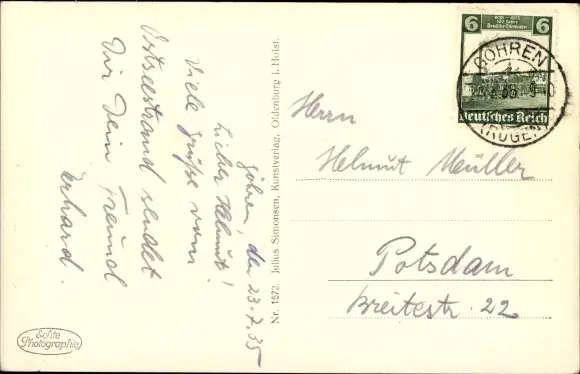 Göhren, den 23.7.35
Lieber Helmut!
Viele Grüße vom
Ostseestrand sendet
Dir Dein Freund
Erhard.
Echte
Photographie
Nr. 1572. Julius Simonsen, Kunstverlag, Oldenburg i. Holst.
6 6
Deutsches Reich
GÖHREN
(RÜGEN)
Herrn
Helmut Müller
Potsdam
Breitestr. 22